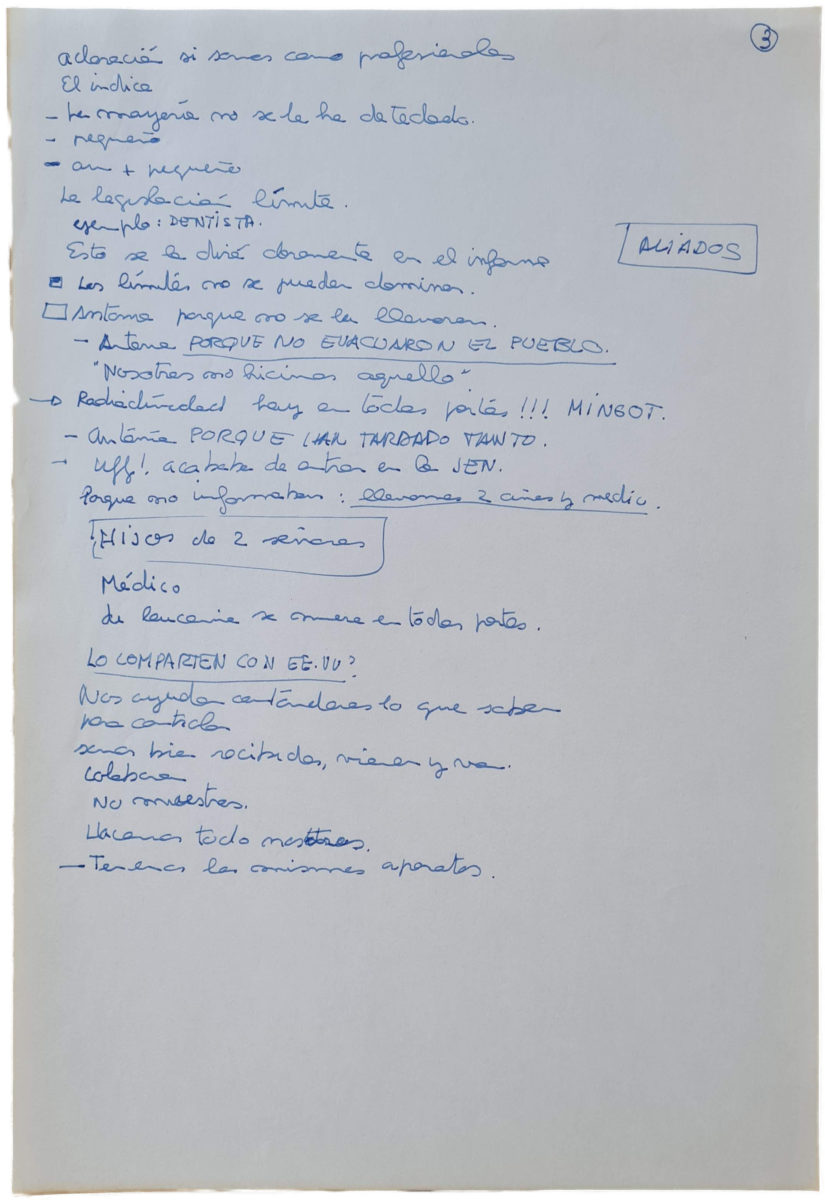 3
aclaración si somos como profesionales
El indice
- La mayoría no se le ha detectado.
- pequeño
- aun + pequeño
La legislación límite.
ejemplo: DENTISTA.
Esto se le dirá claramente en el informe
ALIADOS
Los límites no se pueden dominar.
Antonia porque no se la llevaron.
- Antonia PORQUE NO EVACUARON EL PUEBLO.
"Nosotros no hicimos aquello".
→ Radiactividad hay en todas partes!!! MINGOT.
- Antonia PORQUE HAN TARDADO TANTO.
- Uff!. acababa de entrar en la JEN.
Porque no informaban: llevamos 2 años y medio.
HIJOS de 2 señores
Médico
de leucemia se muere en todas partes.
LO COMPARTEN CON EE.UU?
Nos ayudan contándoles lo que saben
para controlar
somos bien recibidos, vienen y van.
colaboran
No muestras.
Hacemos todo nosotros.
- Tenemos los mismos aparatos.